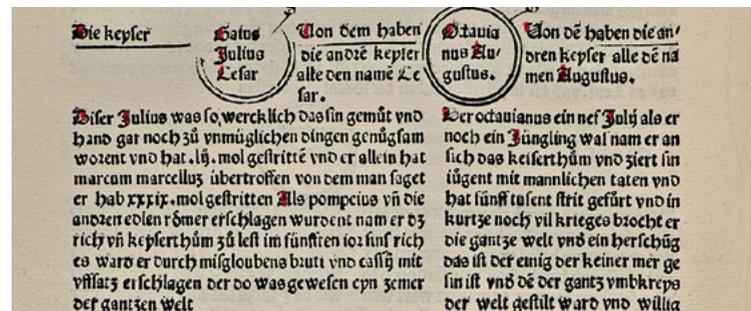 Die keyser
Gaius
Julius
Cesar
Von dem haben
die andrē keyser
alle den namē Ce
sar.
Octauia
nus Au/
gustus.
Von dē haben die an/
dren keyser alle dē na
men Augustus.
Diser Julius was so, wercklich das sin gemüt vnd
hand gar noch zů vnmüglichen dingen genůgsam
worent vnd hat .lij. mol gestrittē vnd er allein hat
marcum marcelluʒ übertroffen von dem man saget
er hab xxxix. mol gestritten Als pompeius vñ die
andren edlen rŏmer erschlagen wurdent nam er dʒ
rich vñ keyserthům zů lest im fünfften ior sins rich
es ward er durch misgloubens bruti vnd cassij mit
vffsatʒ erschlagen der do was gewesen eyn ʒemer
der gantʒen welt
Der octauianus ein nef Julij als er
noch ein Jüngling was nam er an
sich das keiserthům vnd ʒiert sin
iůgent mit mannlichen taten vnd
hat fünff tusent strit gefürt vnd in
kurtʒe noch vil krieges brocht er
die gantʒe welt vnd ein herschůg
das ist der einig der keiner mer ge
sin ist vnd dē der gantʒ vmbkreys
der welt gestilt ward vnd willig